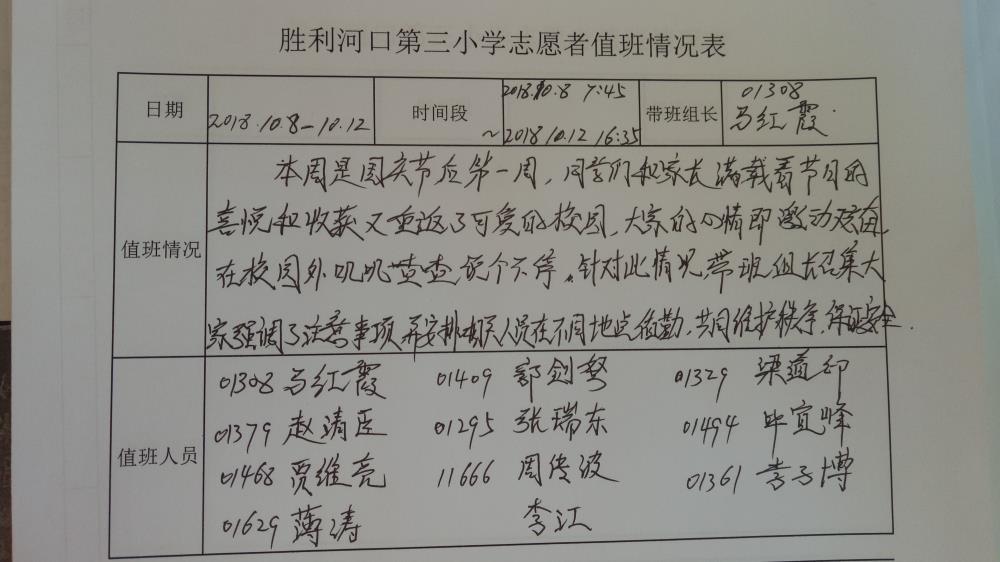 胜利河口第三小学志愿者值班情况表
日期 2018.10.8-10.12 时间段 2018.10.8 7:45 ~2018.10.12 16:35 带班组长 01308 马红霞
值班情况
本周是国庆节后第一周,同学们和家长满载着节日的
喜悦和收获又重返了可爱的校园,大家的心情即激动兴奋,
在校园外叽叽喳喳说个不停。针对此情况带班组长召集大
家强调了注意事项并安排相关人员在不同地点值勤,共同维护秩序,保证安全.
值班人员
01308 马红霞 01409 郭剑 01329 梁道印
01379 赵靖臣 01295 张瑞东 01494 毕宜峰
01468 贾维亮 11666 周传波 01361 李子博
01629 薄涛 李江